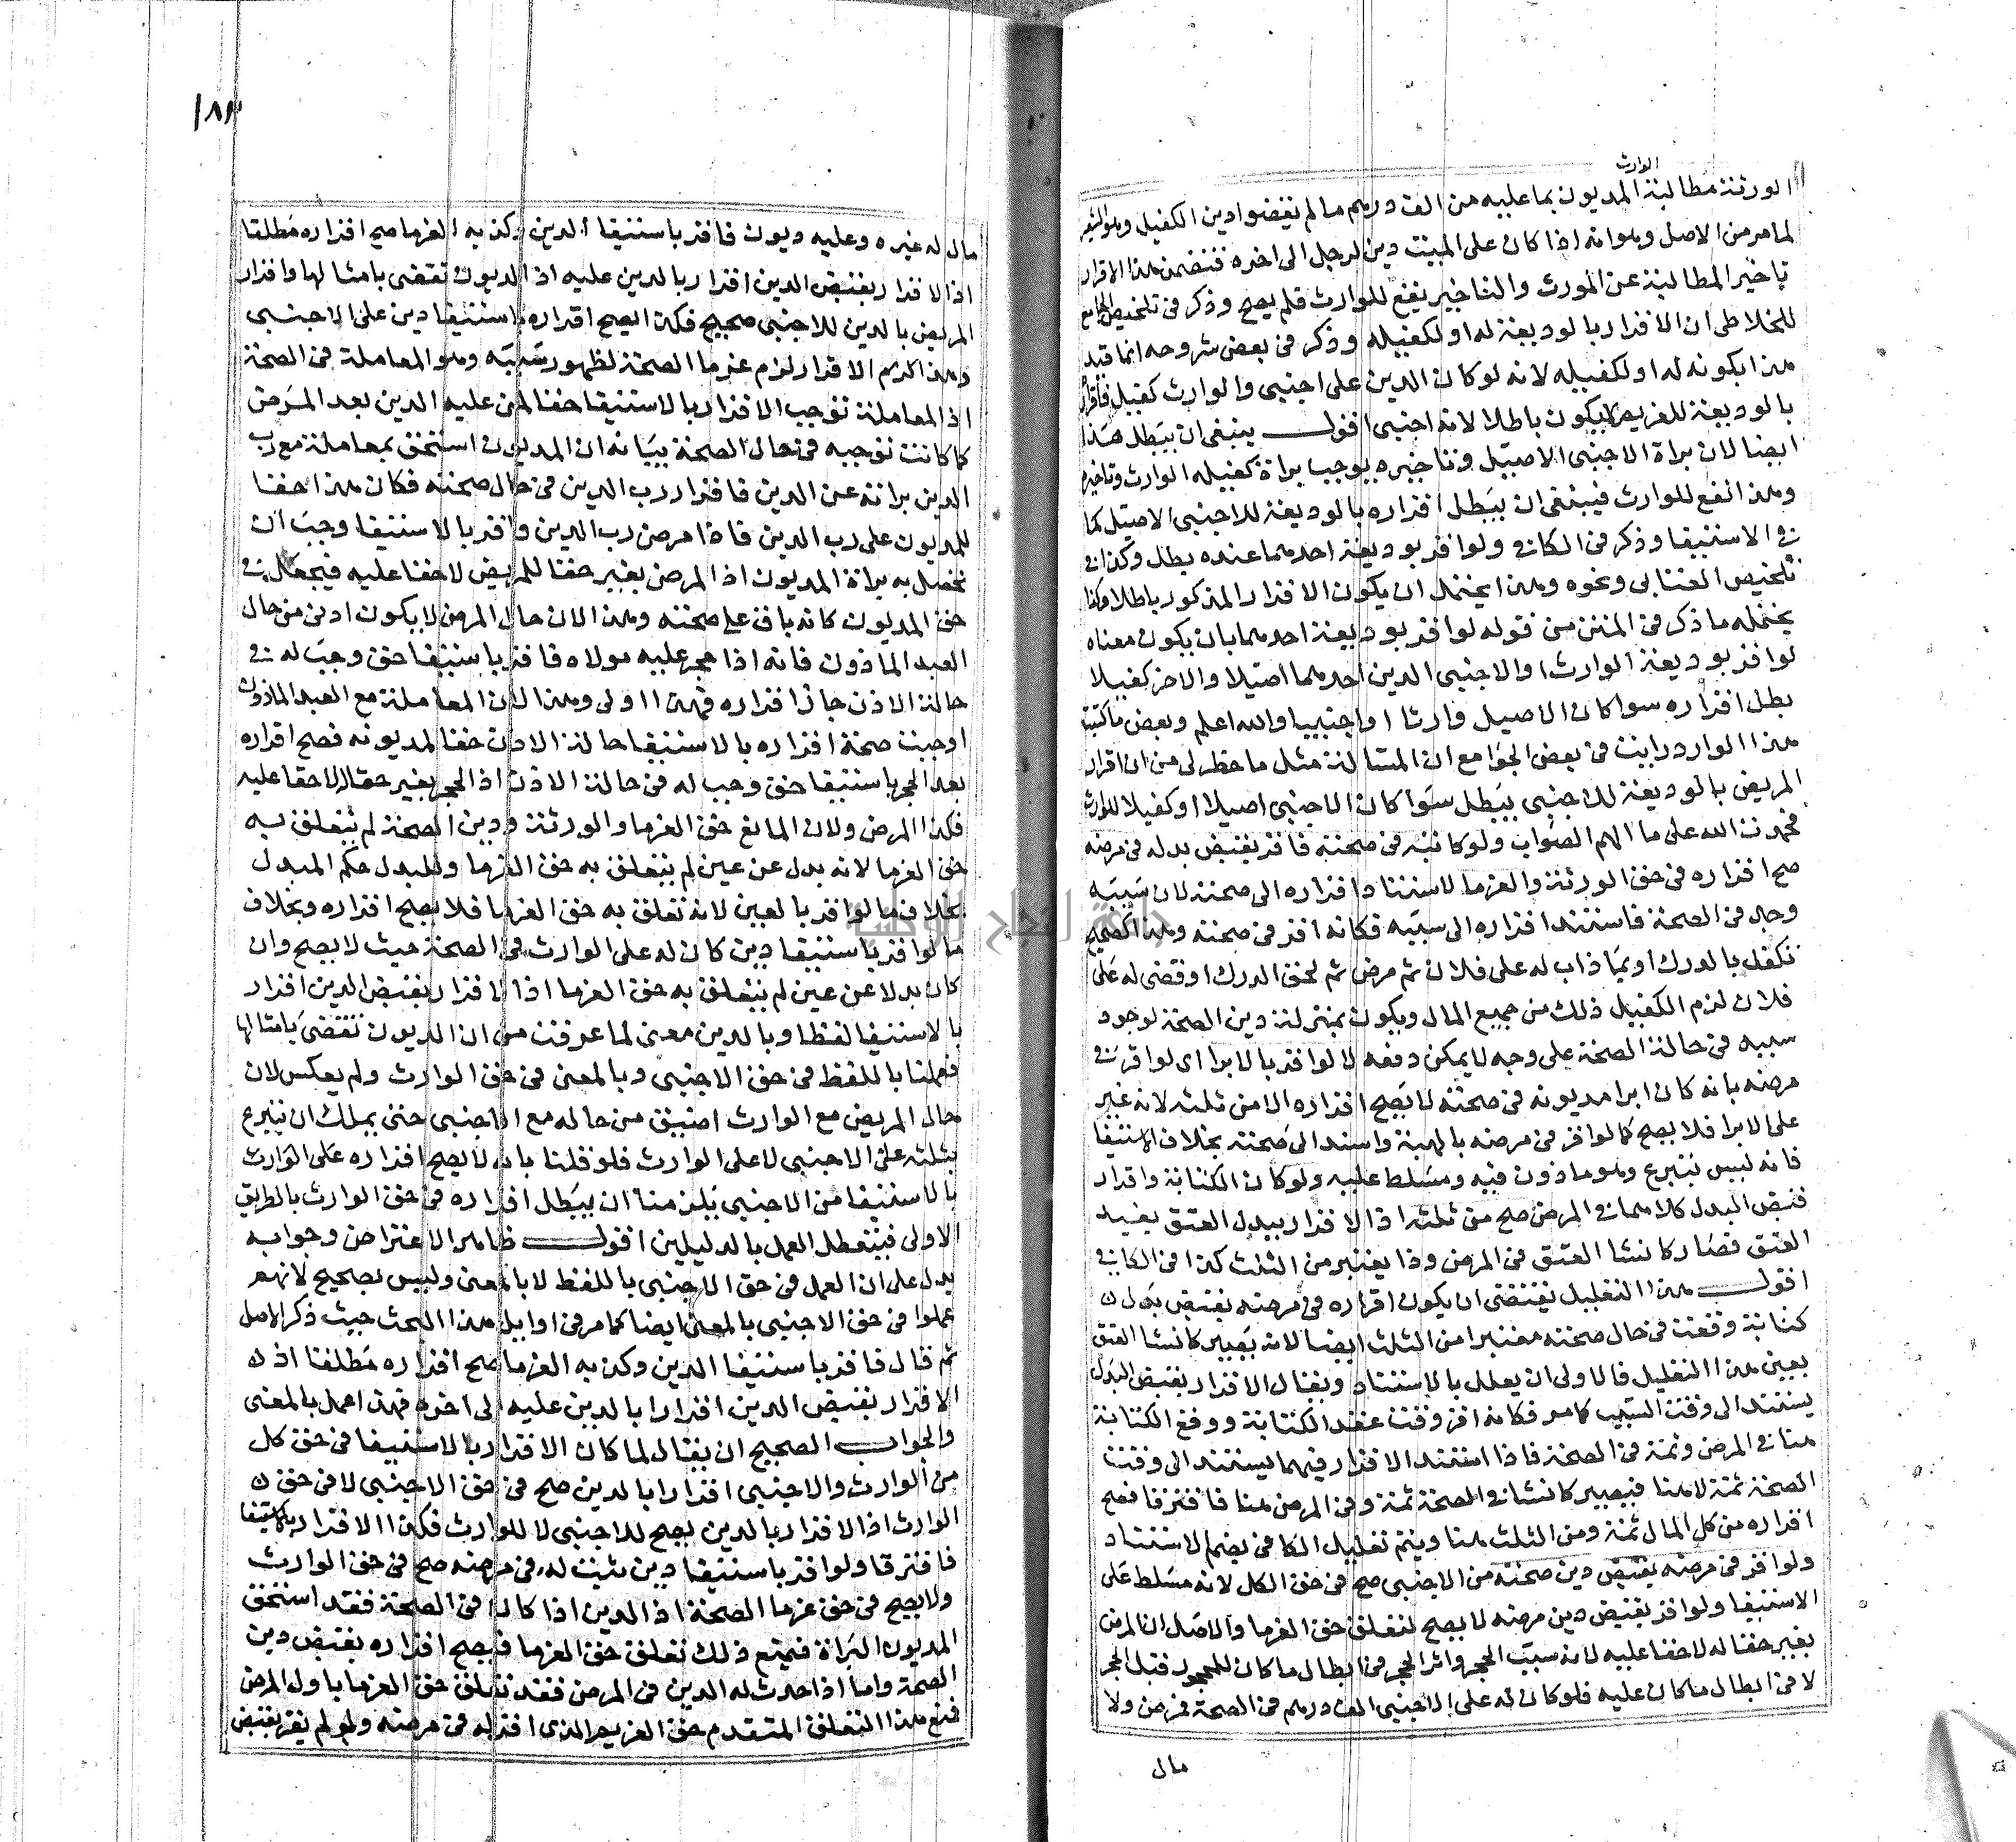 الوارث
الورثة مطالبة المديون بما عليه من الف درهم ما لم يقبضوا دين الكفيل وهو الشهر
لما مر من الاصل وهو انه اذا كان على الميت دين لرجل الى اخره فتضمن هذا الاقرار
تاخير المطالبة عن المورث والتاخير يقع للوارث فلم يصح وذكر في تلخيص الجامع
للخلاطي ان الاقرار بالوديعة له او لكفيله وذكر في بعض شروحه انما قيد
هذا بكونه له او لكفيله لانه لو كان الدين على اجنبي والوارث كفيل فاقرار
بالوديعة للغريم لا يكون باطلا لانه اجنبي اقول ينبغي ان يبطل هذا
ايضا لان براة الاجنبي الاصيل وتاخيره يوجب براة كفيله الوارث وتاخيره
وهذا نفع للوارث فينبغي ان يبطل اقراره بالوديعة للاجنبي الاصيل كما
في الاستيفا وذكر في الكافي ولو اقر بوديعة احدهما عنده بطل وكذا في
تلخيص العتابي ونحوه وهذا يحتمل ان يكون الاقرار المذكور باطلا وكذا
يحتمله ما ذكر في المتن من قوله لو اقر بوديعة احدهما بان يكون معناه
لو اقر بوديعة الوارث او الاجنبي الدين احدهما اصيلا والاخر كفيلا
بطل اقراره سوا كان الاصيل وارثا او اجنبيا والله اعلم وبعض ما كتبت
هذا الوارد رايت في بعض الجوامع ان المسالة مثل ما خطر لي من ان اقرار
المريض بالوديعة للاجنبي يبطل سوا كان الاجنبي اصيلا او كفيلا للوارث
فحمدت الله على ما الهم الصواب ولو كاتبه في صحته فاقر بقبض بدله في مرضه
صح اقراره في حق الورثة والغرما لاستناد اقراره الى صحته لان سببه
وجد في الصحة فاستند اقراره الى سببه فكانه اقر في صحته وهذا الصحيح
تكفل بالدرك او بما ذاب له على فلان ثم مرض ثم لحق الدرك او قضى له على
فلان لزم الكفيل ذلك من جميع المال ويكون بمنزلة دين الصحة لوجود
سببه في حالة الصحة على وجه لا يمكن دفعه لا لو اقر بالابرا اي لو اقر في
مرضه بانه كان ابرا مديونه في صحته لا يصح اقراره الا من ثلثه لانه غير
على الابرا فلا يصح كما لو اقر في مرضه بالهبة واسند الى صحته بخلاف الاستيفا
فانه ليس بتبرع وهو ماذون فيه ومسلط عليه ولو كان الكتابة واقرار
قبض البدل كلاهما في المرض صح من ثلثه اذ الاقرار ببدل العتق يفيد
العتق فصار كانشا العتق في المرض وذا يعتبر من الثلث كذا في الكافي
اقول هذا التعليل يقتضي ان يكون اقراره في مرضه بقبض بدل
كتابة وقعت في حال صحته معتبرا من الثلث ايضا لانه يصير كانشا العتق
بعين هذا التعليل فالاولى ان يعلل بالاستناد ويقال الاقرار بقبض البدل
يستند الى وقت السبب كما مر فكانه اقر وقت عقد الكتابة ووقع الكتابة
هنا في المرض وثمة في الصحة فاذا استند الاقرار فيهما يستند الى وقت
الصحة ثمة لا هنا فيصير كانشا في الصحة ثمة وفي المرض هنا فافترقا فصح
اقراره من كل المال ثمة ومن الثلث هنا ويتم تعليل الكافي بضم الاستناد
ولو اقر في مرضه بقبض دين صحته من الاجنبي صح في حق الكل لانه مسلط على
الاستيفا ولو اقر بقبض دين مرضه لا يصح لتعلق حق الغرما والاصل ان المرض
يغير حقا له لا حقا عليه لانه سبب الحجر واثر الحجر في ابطال ما كان للمحجور قبل الحجر
لا في ابطال ما كان عليه فلو كان له على الاجنبي الف درهم في الصحة فمرض ولا
مال
١٨٣
مال له غيره وعليه ديون فاقر باستيفا الدين وكذبه الغرما صح اقراره مطلقا
اذ الاقرار بقبض الدين اقرار بالدين عليه اذ الديون تقضى بامثالها واقرار
المريض بالدين للاجنبي صحيح فكذا يصح اقراره باستيفا دين على الاجنبي
وهذا لزم الاقرار لزم غرما الصحة لظهور سببه وهو المعاملة في الصحة
اذ المعاملة توجب الاقرار بالاستيفا حقا لمن عليه الدين بعد المرض
كما كانت توجبه في حال الصحة بيانه ان المديون استحق بمعاملة مع رب
الدين براته عن الدين فاقرار رب الدين في حال صحته فكان هذا حقا
للمديون على رب الدين فاذا مرض رب الدين واقر بالاستيفا وجب ان
تحصل به براة المديون اذ المرض يغير حقا للمريض لا حقا عليه فيجعل في
حق المديون كانه باق على صحته وهذا لان حال المرض لا يكون ادنى من حال
العبد الماذون فانه اذا حجر عليه مولاه فاقر باستيفا حق وجب له في
حالة الاذن جاز اقراره فهذا اولى وهذا لان المعاملة مع العبد الماذون
اوجبت صحة اقراره بالاستيفا حالة الاذن حقا لمديونه فصح اقراره
بعد الحجر باستيفا حق وجب له في حالة الاذن اذ الحجر يغير حقا له لا حقا عليه
فكذا المرض ولان المانع حق الغرما والورثة ودين الصحة لم يتعلق به
حق الغرما لانه بدل عن عين لم يتعلق به حق الغرما وللبدل حكم المبدل
بخلاف ما لو اقر بالعين لانه تعلق به حق الغرما فلا يصح اقراره وبخلاف
ما لو اقر باستيفا دين كان له على الوارث في الصحة حيث لا يصح وان
كان بدلا عن عين لم يتعلق به حق الغرما اذ الاقرار بقبض الدين اقرار
بالاستيفا لفظا وبالدين معنى لما عرفت من ان الديون تقضى بامثالها
فعملنا باللفظ في حق الاجنبي وبالمعنى في حق الوارث ولم يعكس لان
حال المريض مع الوارث اضيق من حاله مع الاجنبي حتى يملك ان يتبرع
بثلثه على الاجنبي لا على الوارث فلو قلنا بانه لا يصح اقراره على الوارث
بالاستيفا من الاجنبي يلزمنا ان يبطل اقراره في حق الوارث بالطريق
الاولى فيتعطل العمل بالدليلين اقول ظاهر الاعتراض وجوابه
يدل على ان العمل في حق الاجنبي باللفظ لا بالمعنى وليس بصحيح لانهم
عملوا في حق الاجنبي بالمعنى ايضا كما مر في اوايل هذا البحث حيث ذكر الاصل
ثم قال فاقر باستيفا الدين وكذبه الغرما صح اقراره مطلقا اذ
الاقرار بقبض الدين اقرارا بالدين عليه الى اخره فهذا عمل بالمعنى
والجواب الصحيح ان يقال لما كان الاقرار بالاستيفا في حق كل
من الوارث والاجنبي اقرارا بالدين صح في حق الاجنبي لا في حق
الوارث اذ الاقرار بالدين يصح للاجنبي لا للوارث فكذا الاقرار بالاستيفا
فافترقا ولو اقر باستيفا دين يثبت له في مرضه صح في حق الوارث
ولا يصح في حق غرما الصحة اذ الدين اذا كان في الصحة فقد استحق
المديون البراة فيمنع ذلك تعلق حق الغرما فيصح اقراره بقبض دين
الصحة واما اذا حدث له الدين في المرض فقد تعلق حق الغرما باول المرض
فمنع هذا التعلق المتقدم حق الغريم الذي اقر له في مرضه ولو لم يقر بقبض